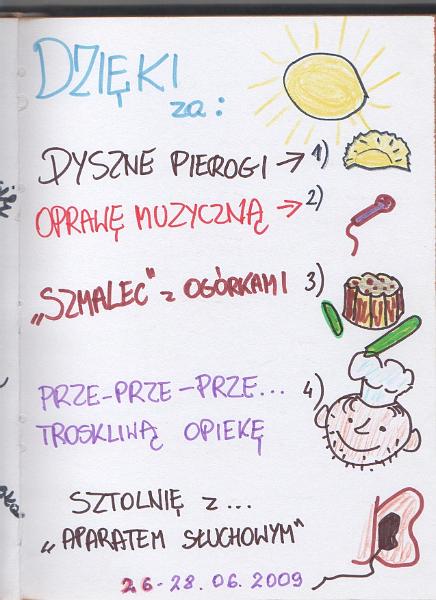 DZIĘKI
za:
DYSZNE PIEROGI → 1)
OPRAWĘ MUZYCZNĄ → 2)
„SZMALEC" z OGÓRKAMI 3)
PRZE-PRZE-PRZE... 4)
TROSKLIWĄ OPIEKĘ
SZTOLNIĘ z...
„APARATEM SŁUCHOWYM"
26-28.06.2009